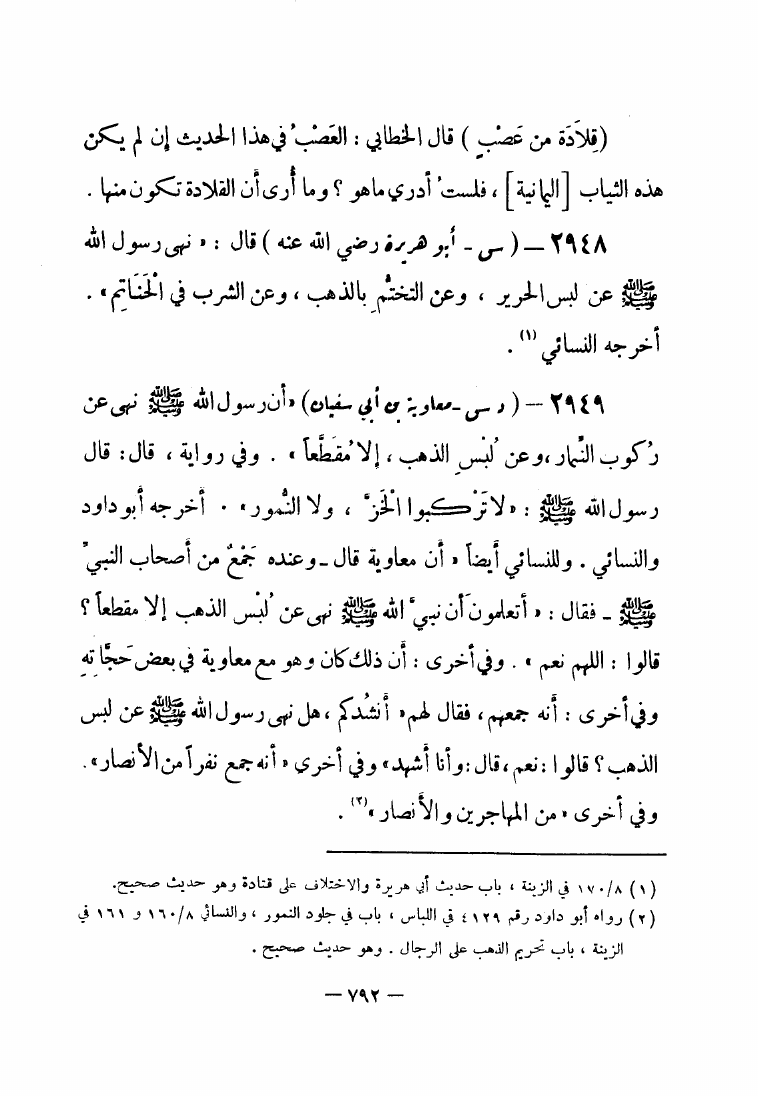 (قِلاَدَة من عَصْبٍ) قال الخطابي : العَصْبُ في هذا الحديث إن لم يكن
هذه الثياب [اليمانية] ، فلستُ أدري ما هو ؟ وما أُرى أن القلادة تكون منها .
٢٩٤٨ — (س - أبو هريرة رضي الله عنه) قال : « نهى رسول الله
ﷺ عن لبس الحرير ، وعن التختُّمِ بالذهب ، وعن الشرب في الْحَنَاتِم » .
أخرجه النسائي (١) .
٢٩٤٩ — (د س - معاوية بن أبي سفيان) «أن رسول الله ﷺ نهى عن
رُكوب النِّمار ، وعن لُبْسِ الذهب ، إلا مُقَطَّعاً » . وفي رواية ، قال : قال
رسول الله ﷺ : « لا تَرْكبوا الْخَزَّ ، ولا النُّمور » . أخرجه أبو داود
والنسائي . وللنسائي أيضاً « أن معاوية قال - وعنده جَمْعٌ من أصحاب النبيِّ
ﷺ - فقال : « أتعلمون أن نبيَّ الله ﷺ نهى عن لُبْسِ الذهب إلا مقطعاً ؟
قالوا : اللهم نعم » . وفي أخرى : أن ذلك كان وهو مع معاوية في بعض حَجَّاتِهِ
وفي أخرى : أنه جمعهم ، فقال لهم « أنشُدكم ، هل نهى رسول الله ﷺ عن لبس
الذهب ؟ قالوا : نعم ، قال : وأنا أشهد » وفي أخرى « أنه جمع نفراً من الأنصار » .
وفي أخرى « من المهاجرين والأنصار »(٢) .
(١) ٨/ ١٧٠ في الزينة ، باب حديث أبي هريرة والاختلاف على قتادة وهو حديث صحيح.
(٢) رواه أبو داود رقم ٤١٢٩ في اللباس ، باب في جلود النمور ، والنسائي ٨/ ١٦٠ و ١٦١ في
الزينة ، باب تحريم الذهب على الرجال . وهو حديث صحيح .
— ٧٩٢ —